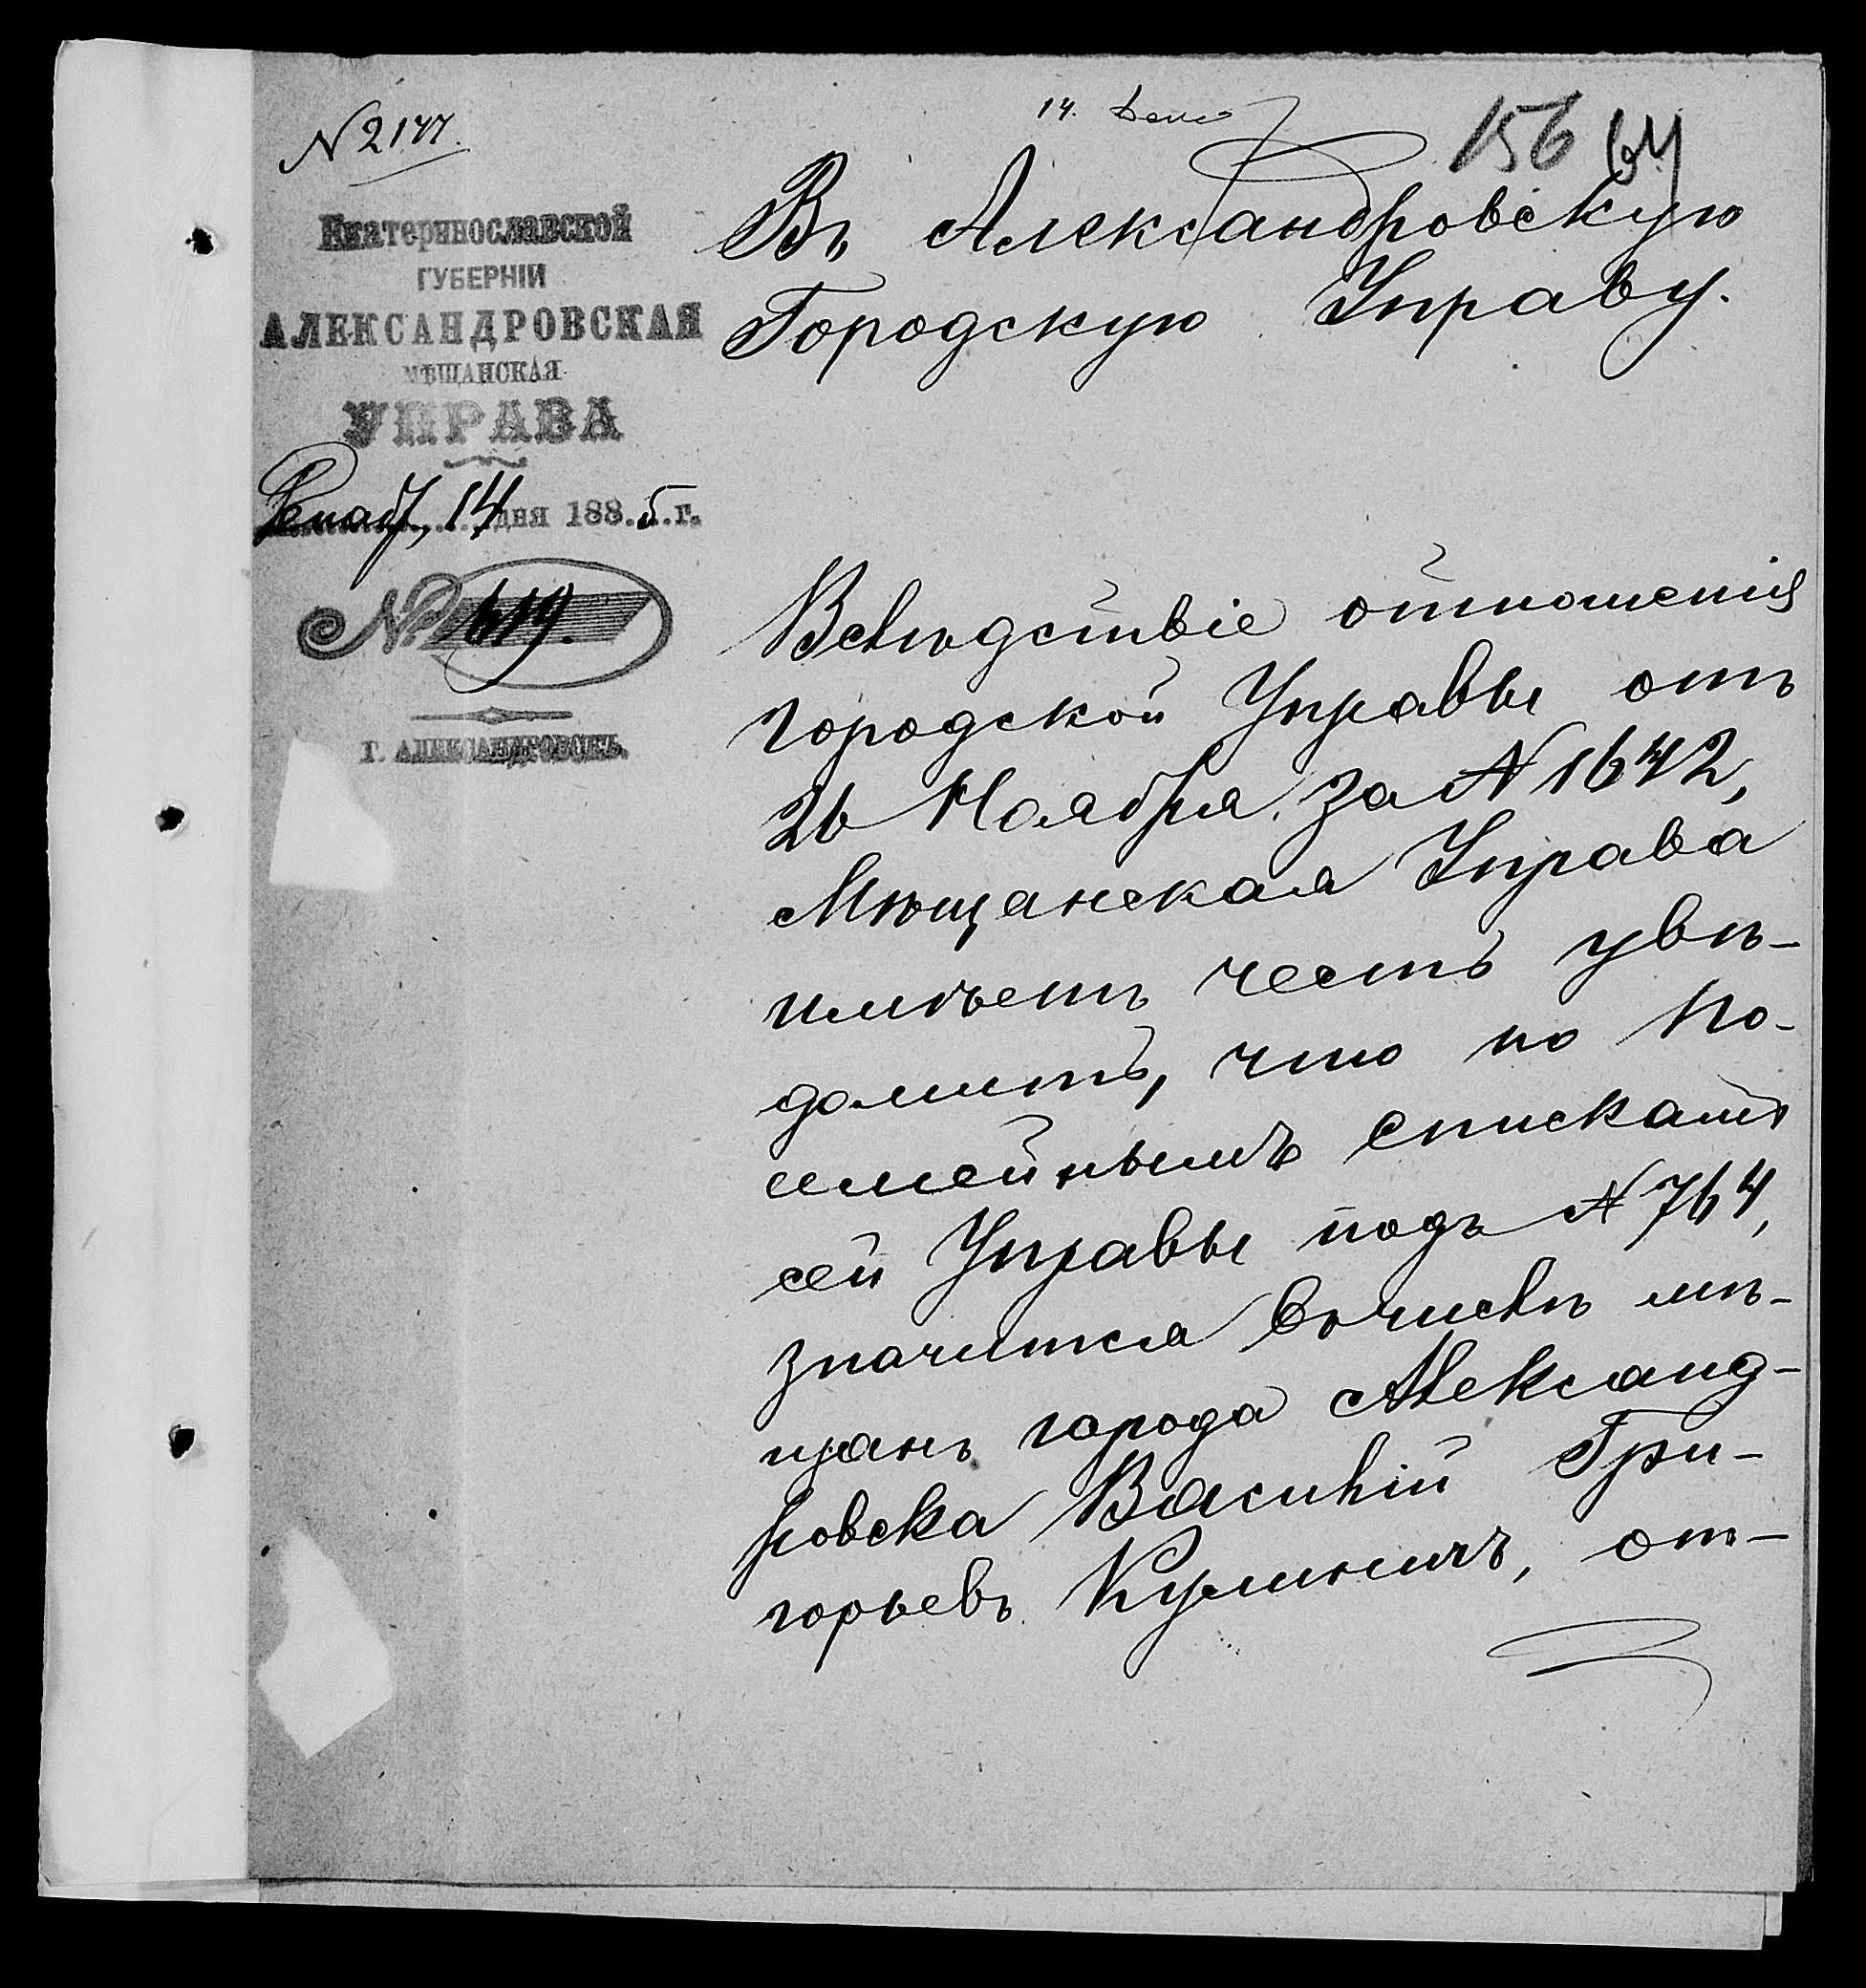 N 2177.
14. Дек
156
64
Екатеринославской
ГУБЕРНІИ
АЛЕКСАНДРОВСКАЯ
МѢЩАНСКАЯ
УПРАВА
Декаб, 14 дня 1885 г.
№ 619.
Г. АЛЕКСАНДРОВСКЪ.
Въ Александровскую
Городскую Управу.
Вслѣдствіе отношенія
городской Управы отъ
26 Ноября за N 1642,
Мѣщанская Управа
имѣетъ честь увѣ-
домить, что по по-
семейнымъ спискамъ
сей Управы подъ N 764,
значится вочислѣ мѣ-
щанъ города Александ-
ровска Василій Гри-
горьевъ отъ-